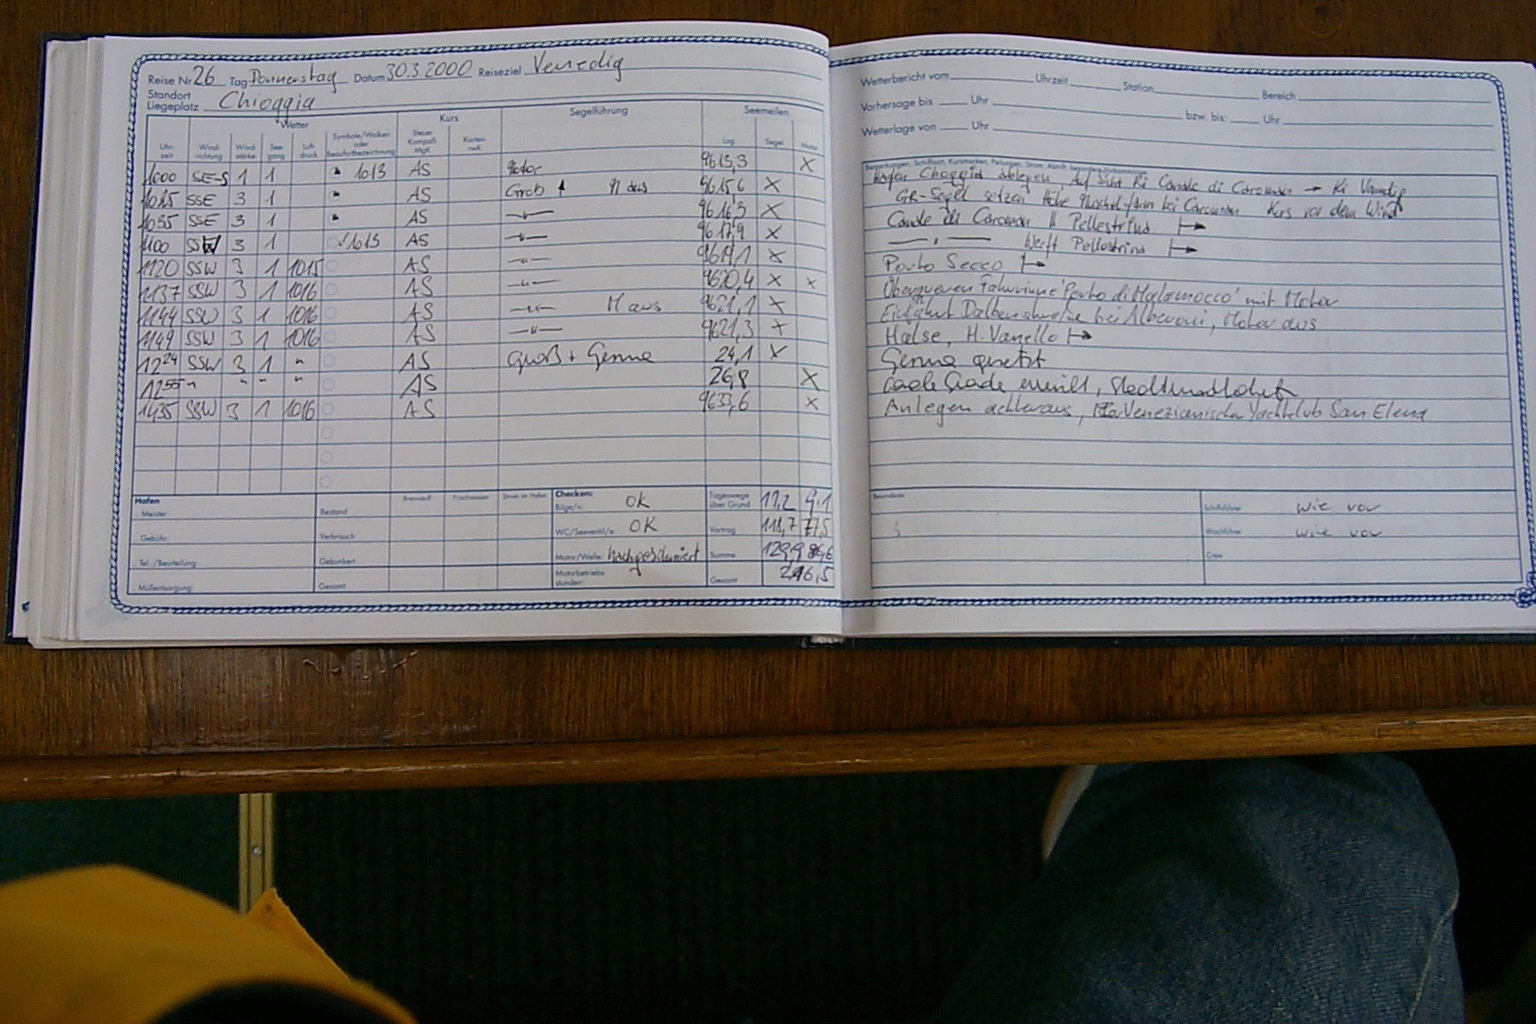 Reise Nr. 26 Tag Donnerstag Datum 30.3.2000 Reiseziel Venedig
Standort
Liegeplatz Chioggia
Wetter Kurs Segelführung Seemeilen
Uhrzeit Windrichtung Windstärke Seegang Luftdruck Symbole/Wolken oder Beaufortbezeichnung Steuer Kompaß MgK Karten rwK Log Segel Motor
1000 SE-S 1 1 1013 AS Motor 9613,3 X
SSE 3 1 AS Groß M aus 9615,6 X
1035 SSE 3 1 AS 9616,3 X
1100 SSW 3 1 1013 AS 9617,9 X
1120 SSW 3 1 1015 AS 9619,1 X
1137 SSW 3 1 1016 AS 9620,4 X X
1144 SSW 3 1 1016 AS M aus 9621,1 X
1149 SSW 3 1 1016 AS 9621,3 X
1224 SSW 3 1 " AS Groß + Genua 24,1 X
1255 " " " " AS 26,8 X
1435 SSW 3 1 1016 AS 9633,6 X
Hafen
Meister:
Gebühr:
Tel./Beurteilung
Müllentsorgung:
Brennstoff Frischwasser Strom im Hafen
Bestand
Verbrauch
Gebunkert
Gesamt
Checken:
Bilge/n: OK
WC/Seeventil/e: OK
Motor/Welle: nachgeschmiert
Motorbetriebsstunden:
Tageswege über Grund 11,2 9,1
Vortrag 118,7 77,5
Summe 129,9 86,6
Gesamt 216,5
Wetterbericht vom Uhrzeit Station Bereich
Vorhersage bis Uhr bzw. bis: Uhr
Wetterlage von Uhr
Hafen Chioggia ablegen, Auf Sicht Ri Canale di Caroman → Ri Venedig
Gr-Segel setzen Höhe Muschelfarm bei Caroman Kurs vor dem Wind
Canale di Caroman Pellestrina
Werft Pellestrina
Porto Secco
Überqueren Fahrrinne 'Porto di Malamocco' mit Motor
Einfahrt Dalbenstraße bei Alberoni, Motor aus
Halse, H. Vanello
Genua gesetzt
Anlegen achteraus, Venezianischer Yachtclub San Elena
Besonderes
Schiffsführer wie vor
Wachführer wie vor
Crew